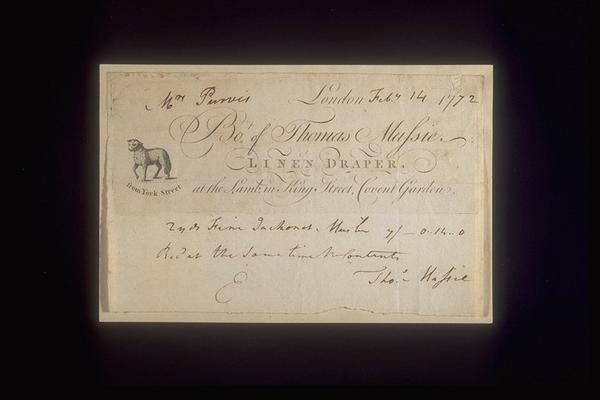 Mrs Purvis London Feby 14 1772
Bot. of Thomas Maſsie.
LINEN DRAPER.
at the Lamb, in King Street, Covent Garden.
from York Street
2 yds Fine Jackonet Muslin 7/- 0..14..0
Recd at the Same time the Contents
Thos Maſsie